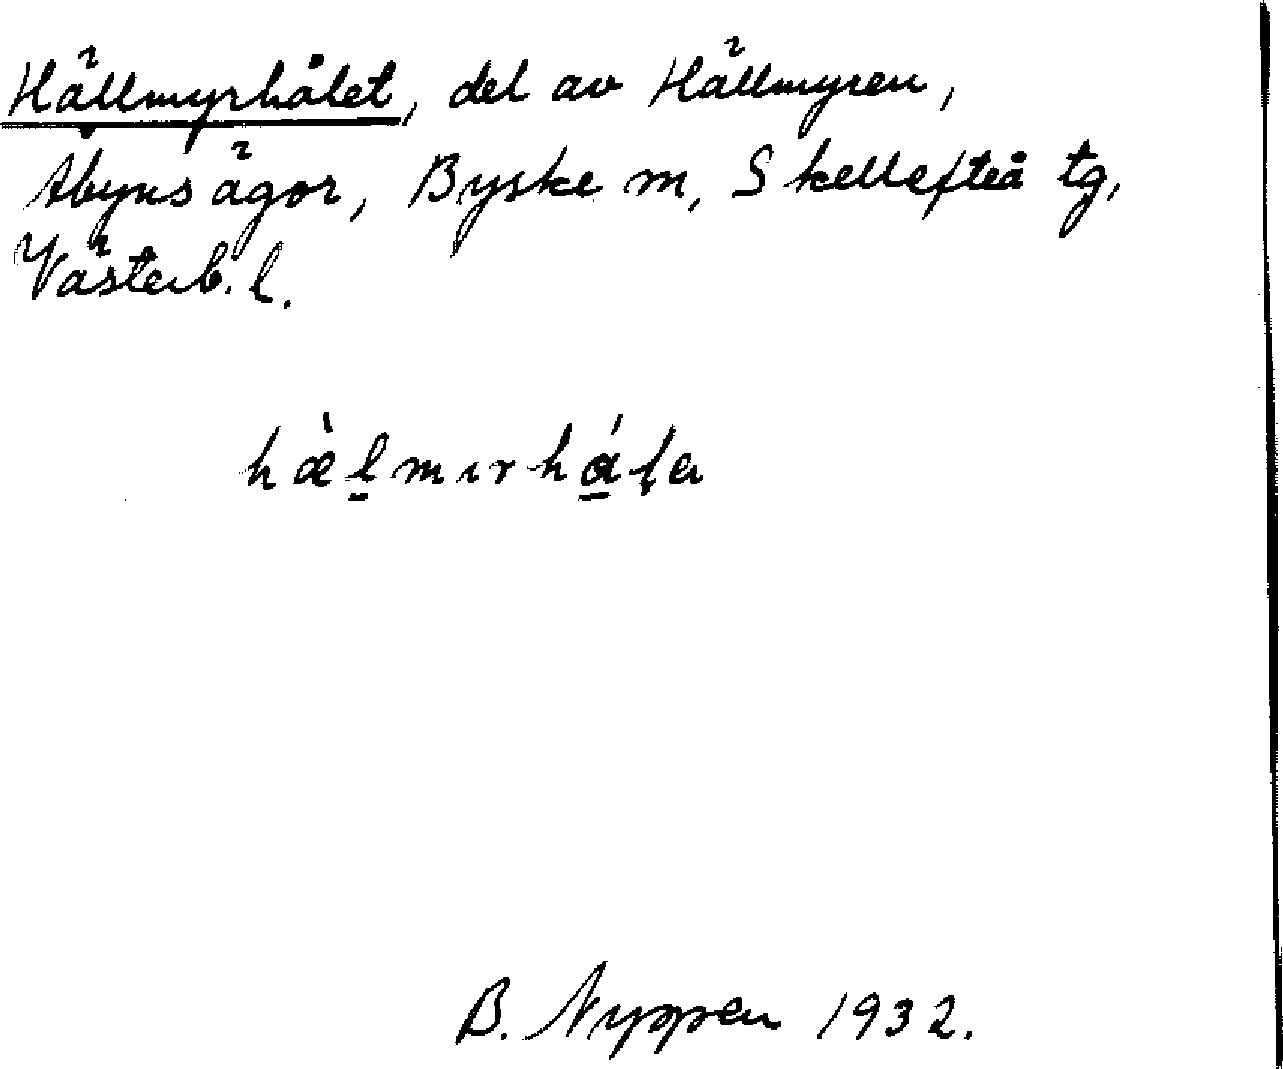 Hällmyrhålet, del av Hällmyren,
Åbyns ägor, Byske sn, Skellefteå tg,
Västerb. l.
hæ̀l̠mırhɑ̠́ļa
B. Nyppen 1932.